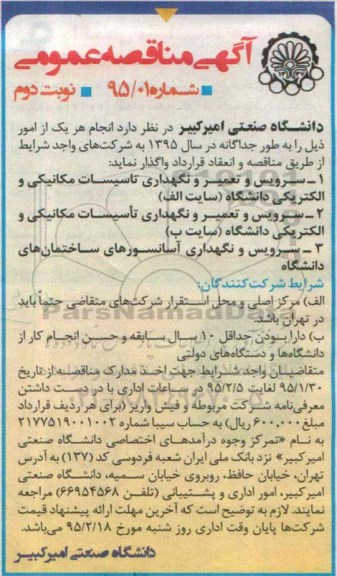 آگهی مناقصه عمومی
شماره ۹۵/۰۱ نوبت دوم
دانشگاه صنعتی امیرکبیر در نظر دارد انجام هر یک از امور
ذیل را به طور جداگانه در سال ۱۳۹۵ به شرکت‌های واجد شرایط
از طریق مناقصه و انعقاد قرارداد واگذار نماید:
۱ ـ سرویس و تعمیر و نگهداری تاسیسات مکانیکی و
الکتریکی دانشگاه (سایت الف)
۲ ـ سرویس و تعمیر و نگهداری تأسیسات مکانیکی و
الکتریکی دانشگاه (سایت ب)
۳ ـ سرویس و نگهداری آسانسورهای ساختمان‌های
دانشگاه
شرایط شرکت‌کنندگان:
الف) مرکز اصلی و محل استقرار شرکت‌های متقاضی حتماً باید
در تهران باشد.
ب) دارا بودن حداقل ۱۰ سال سابقه و حسن انجام کار از
دانشگاه‌ها و دستگاه‌های دولتی
متقاضیان واجد شرایط جهت اخذ مدارک مناقصه از تاریخ
۹۵/۱/۳۰ لغایت ۹۵/۲/۵ در ساعات اداری با در دست داشتن
معرفی‌نامه شرکت مربوطه و فیش واریز (برای هر ردیف قرارداد
مبلغ ۶۰۰,۰۰۰ ریال) به حساب سیبا شماره ۲۱۷۷۵۱۹۰۰۱۰۰۲
به نام «تمرکز وجوه درآمدهای اختصاصی دانشگاه صنعتی
امیرکبیر» نزد بانک ملی ایران شعبه فردوسی کد (۱۳۷) به آدرس
تهران، خیابان حافظ، روبروی خیابان سمیه، دانشگاه صنعتی
امیرکبیر، امور اداری و پشتیبانی (تلفن ۶۶۹۵۴۵۶۸) مراجعه
نمایند. لازم به توضیح است که آخرین مهلت ارائه پیشنهاد قیمت
شرکت‌ها پایان وقت اداری روز شنبه مورخ ۹۵/۲/۱۸ می‌باشد.
دانشگاه صنعتی امیرکبیر
ParsNamadData